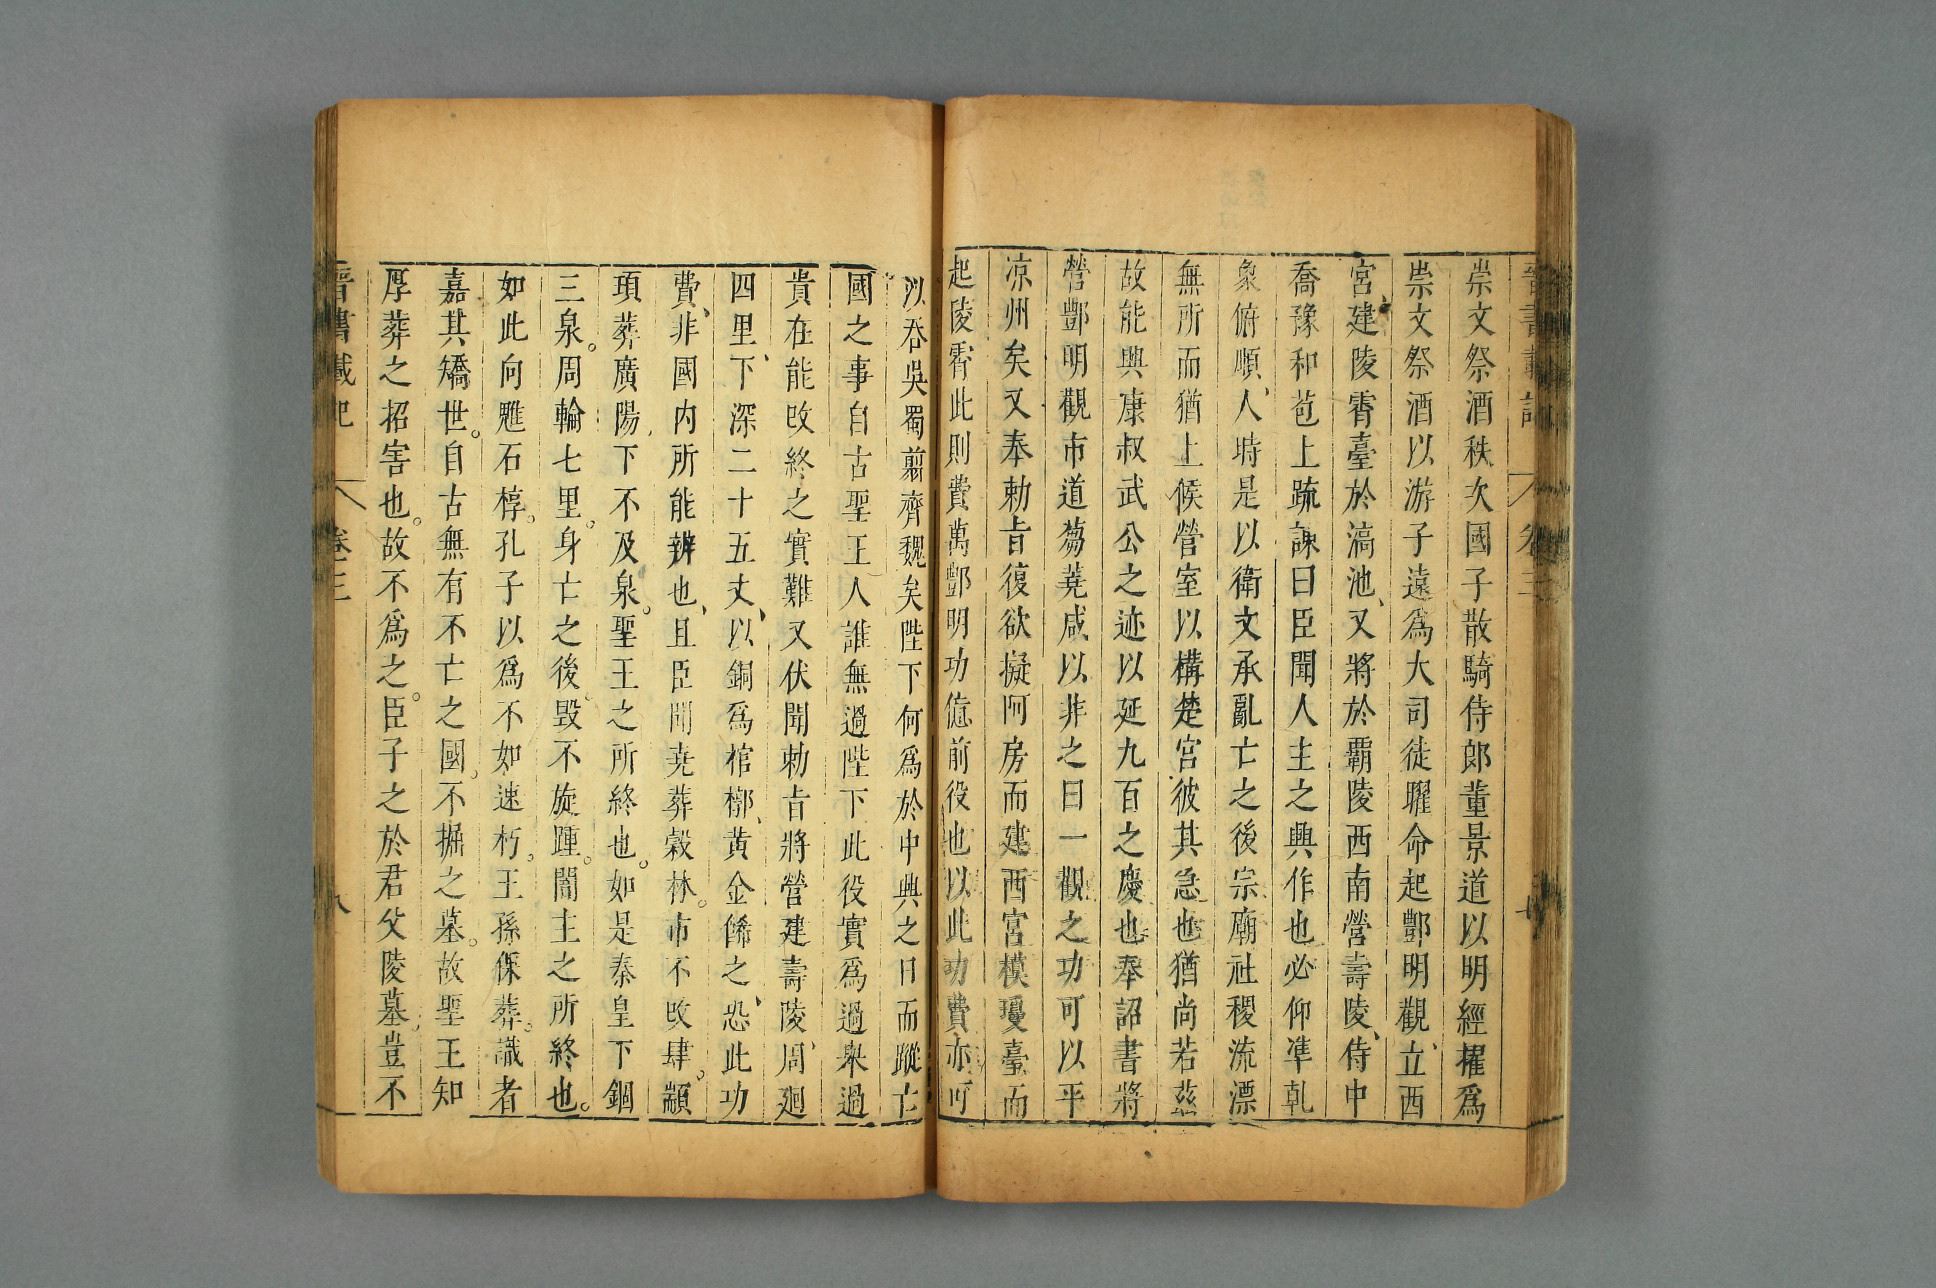 晉書載記 卷三 七
崇文祭酒秩次國子散騎侍郎董景道以明經擢爲
崇文祭酒以游子遠爲大司徒曜命起酆明觀立西
宮建陵霄臺於滈池又將於霸陵西南營壽陵侍中
喬豫和苞上疏諫曰臣聞人主之興作也必仰準乹
象俯順人時是以衛文承亂亡之後宗廟社稷流漂
無所而猶上候營室以構楚宮彼其急也猶尚若茲
故能興康叔武公之迹以延九百之慶也奉詔書將
營酆明觀市道芻蕘咸以非之曰一觀之功可以平
凉州矣又奉勅旨復欲擬阿房而建西宮模瓊臺而
起陵霄此則費萬酆明功億前役也以此功費亦可
以吞吳蜀翦齊魏矣陛下何爲於中興之日而蹤亡
國之事自古聖王人誰無過陛下此役實爲過舉過
貴在能改終之實難又伏聞勅旨將營建壽陵周廻
四里下深二十五丈以銅爲棺槨黃金餙之恐此功
費非國内所能辨也且臣聞堯葬穀林市不改肆顓
頊葬廣陽下不及泉聖王之所終也如是秦皇下錮
三泉周輪七里身亡之後毀不旋踵闇主之所終也
如此向魋石椁孔子以爲不如速朽王孫倮葬識者
嘉其矯世自古無有不亡之國不掘之墓故聖王知
厚葬之招害也故不爲之臣子之於君父陵墓豈不
晉書載記 卷三 八